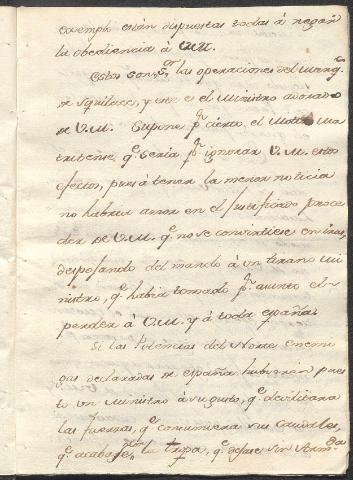 exemplo están dispuestas todas á negar
la obediencia á V.M.
Estas son S.or las operaciones del Marq.s
de Squilace, y este es el Ministro adorado
de V.M. Supone p.r cierto el Motin Ma
tritense, q.e sería p.r ignorar V.M. estos
efectos, pues á tener la menor noticia
no habria amor en el justificado proce
der de V.M. q.e no se convirtiese en iras,
despojando del mando á un tirano mi
nistro, q.e había tomado p.r asunto el
perder á V.M. y á toda españa.
Si las Potencias del Norte enemi
gas declaradas de españa hubieran pues
to un Ministro á su gusto, q.e devilitara
las fuerzas, q.e consumiera sus caudales,
q.e acabase con la tropa, q.e dejase sin Arm.da